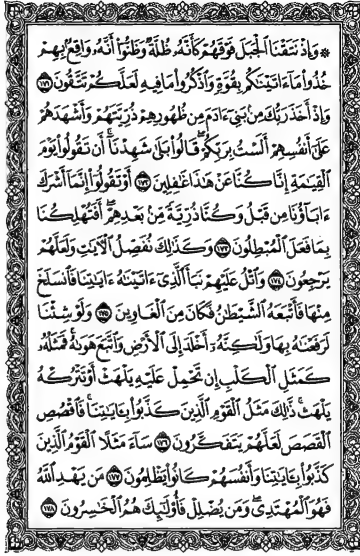 ۞ وَإِذْ نَتَقْنَا الْجَبَلَ فَوْقَهُمْ كَأَنَّهُ ظُلَّةٌ وَظَنُّوا أَنَّهُ وَاقِعٌ بِهِمْ
خُذُوا مَا ءَاتَيْنَاكُم بِقُوَّةٍ وَاذْكُرُوا مَا فِيهِ لَعَلَّكُمْ تَتَّقُونَ ١٧١
وَإِذْ أَخَذَ رَبُّكَ مِن بَنِي ءَادَمَ مِن ظُهُورِهِمْ ذُرِّيَّتَهُمْ وَأَشْهَدَهُمْ
عَلَىٰ أَنفُسِهِمْ أَلَسْتُ بِرَبِّكُمْ قَالُوا بَلَىٰ شَهِدْنَا أَن تَقُولُوا يَوْمَ
الْقِيَٰمَةِ إِنَّا كُنَّا عَنْ هَٰذَا غَٰفِلِينَ ١٧٢ أَوْ تَقُولُوا إِنَّمَا أَشْرَكَ
ءَابَاؤُنَا مِن قَبْلُ وَكُنَّا ذُرِّيَّةً مِّنْ بَعْدِهِمْ أَفَتُهْلِكُنَا
بِمَا فَعَلَ الْمُبْطِلُونَ ١٧٣ وَكَذَٰلِكَ نُفَصِّلُ الْءَايَٰتِ وَلَعَلَّهُمْ
يَرْجِعُونَ ١٧٤ وَاتْلُ عَلَيْهِمْ نَبَأَ الَّذِي ءَاتَيْنَٰهُ ءَايَٰتِنَا فَانسَلَخَ
مِنْهَا فَأَتْبَعَهُ الشَّيْطَٰنُ فَكَانَ مِنَ الْغَاوِينَ ١٧٥ وَلَوْ شِئْنَا
لَرَفَعْنَٰهُ بِهَا وَلَٰكِنَّهُ أَخْلَدَ إِلَى الْأَرْضِ وَاتَّبَعَ هَوَىٰهُ فَمَثَلُهُ
كَمَثَلِ الْكَلْبِ إِن تَحْمِلْ عَلَيْهِ يَلْهَثْ أَوْ تَتْرُكْهُ
يَلْهَث ذَّٰلِكَ مَثَلُ الْقَوْمِ الَّذِينَ كَذَّبُوا بِـَٔايَٰتِنَا فَاقْصُصِ
الْقَصَصَ لَعَلَّهُمْ يَتَفَكَّرُونَ ١٧٦ سَاءَ مَثَلًا الْقَوْمُ الَّذِينَ
كَذَّبُوا بِـَٔايَٰتِنَا وَأَنفُسَهُمْ كَانُوا يَظْلِمُونَ ١٧٧ مَن يَهْدِ اللَّهُ
فَهُوَ الْمُهْتَدِي وَمَن يُضْلِلْ فَأُولَٰئِكَ هُمُ الْخَٰسِرُونَ ١٧٨